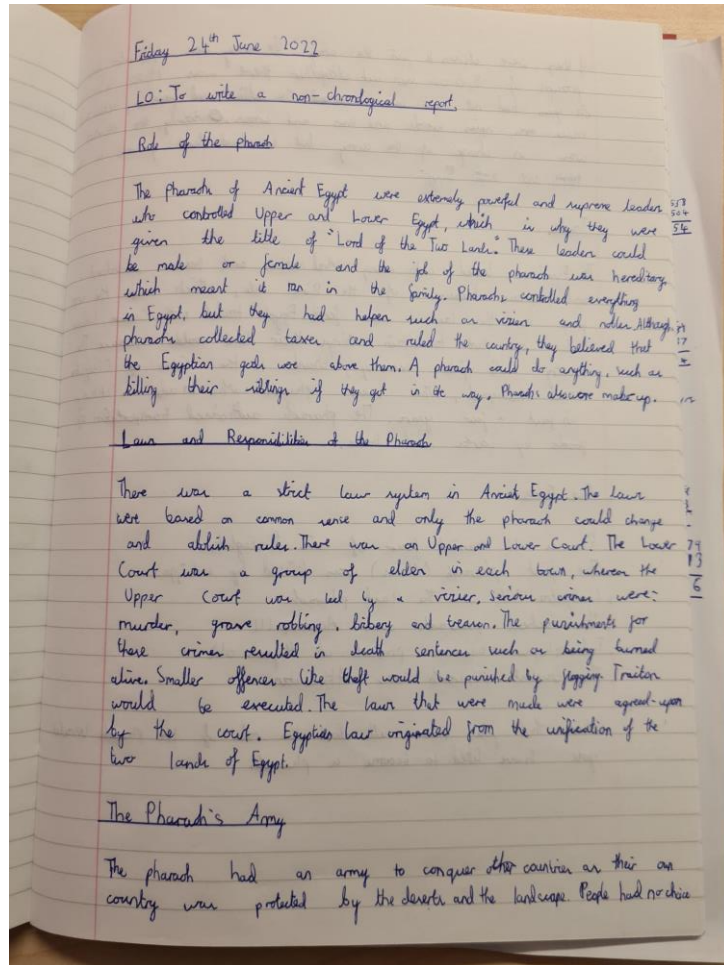 Friday 24th June 2022
LO: To write a non-chronlogical report.
Role of the pharaoh
The pharaohs of Ancient Egypt were extremely powerful and supreme leaders
who controlled Upper and Lower Egypt, which is why they were
given the title of "Lord of the Two Lands." These leaders could
be male or female and the job of the pharaoh was hereditary
which meant it ran in the family. Pharaohs controlled everything
in Egypt, but they had helpers such as viziers and nobles. Although
pharaohs collected taxes and ruled the country, they believed that
the Egyptian gods were above them. A pharaoh could do anything, such as
killing their siblings if they got in the way. Pharaohs also wore make up.
Laws and Responsibilities of the Pharaoh
There was a strict law system in Ancient Egypt. The laws
were based on common sense and only the pharaoh could change
and abolish rules. There was an Upper and Lower Court. The Lower
Court was a group of elders in each town, whereas the
Upper Court was led by a vizier, serious crimes were:
murder, grave robbing, bribery and treason. The punishments for
these crimes resulted in death sentences such as being burned
alive. Smaller offences like theft would be punished by flogging. Traitors
would be executed. The laws that were made were agreed-upon
by the court. Egyptian law originated from the unification of the
two lands of Egypt.
The Pharaoh's Army
The pharaoh had an army to conquer other countries as their own
country was protected by the deserts and the landscape. People had no choice